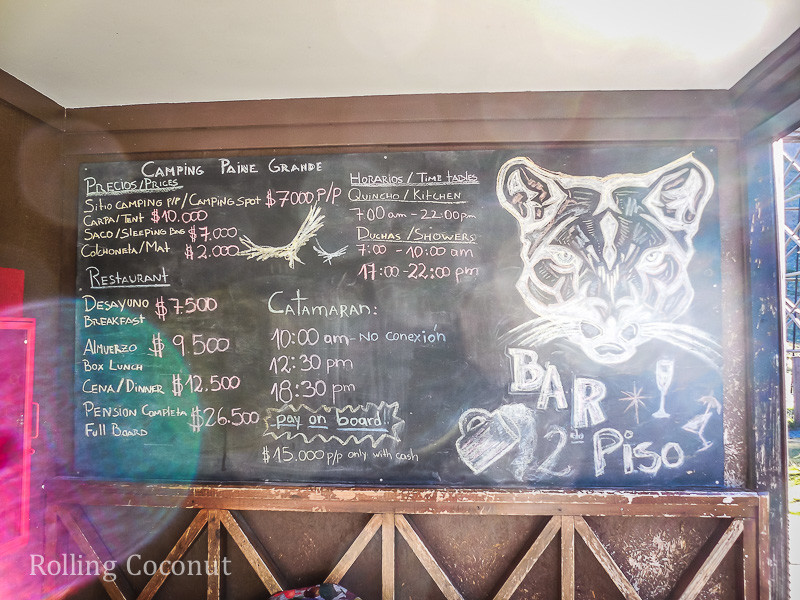 CAMPING PAINE GRANDE
PRECIOS/PRICES
SITIO CAMPING P/P/CAMPING SPOT $7000 P/P
CARPA/TENT $10.000
SACO/SLEEPING BAG $7.000
COLCHONETA/MAT $2.000
RESTAURANT
DESAYUNO $7.500
BREAKFAST
ALMUERZO $9.500
BOX LUNCH
CENA/DINNER $12.500
PENSION COMPLETA $26.500
FULL BOARD
HORARIOS/TIME TABLES
QUINCHO/KITCHEN
7:00 am-22:00pm
DUCHAS/SHOWERS
7:00 - 10:00 am
17:00-22:00 pm
CATAMARAN:
10:00 am-NO CONEXIÓN
12:30 pm
18:30 pm
pay on board!!
$15.000 P/P only with cash
BAR
2do PISO
Rolling Coconut